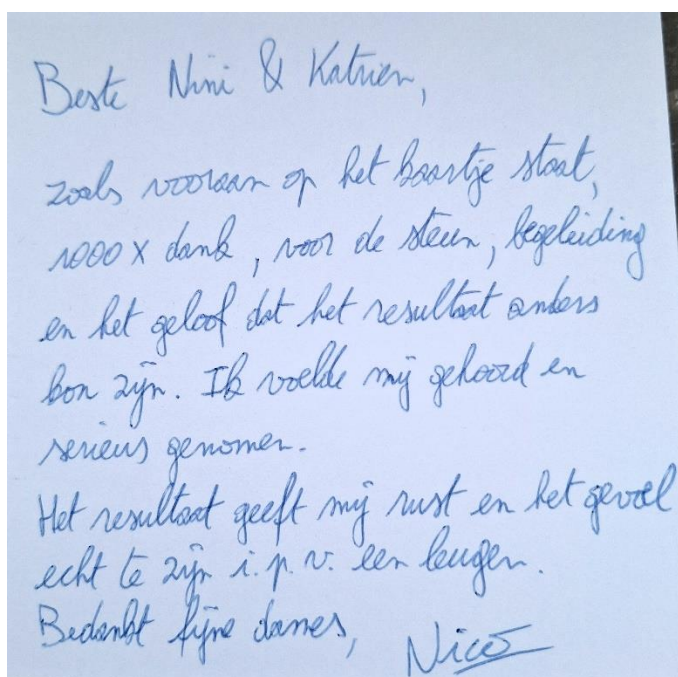 Beste Nini & Katrien,
zoals vooraan op het kaartje staat,
1000 x dank, voor de steun, begeleiding
en het geloof dat het resultaat anders
kon zijn. Ik voelde mij gehoord en
serieus genomen.
Het resultaat geeft mij rust en het gevoel
echt te zijn i.p.v. een leugen.
Bedankt fijne dames,
Nico